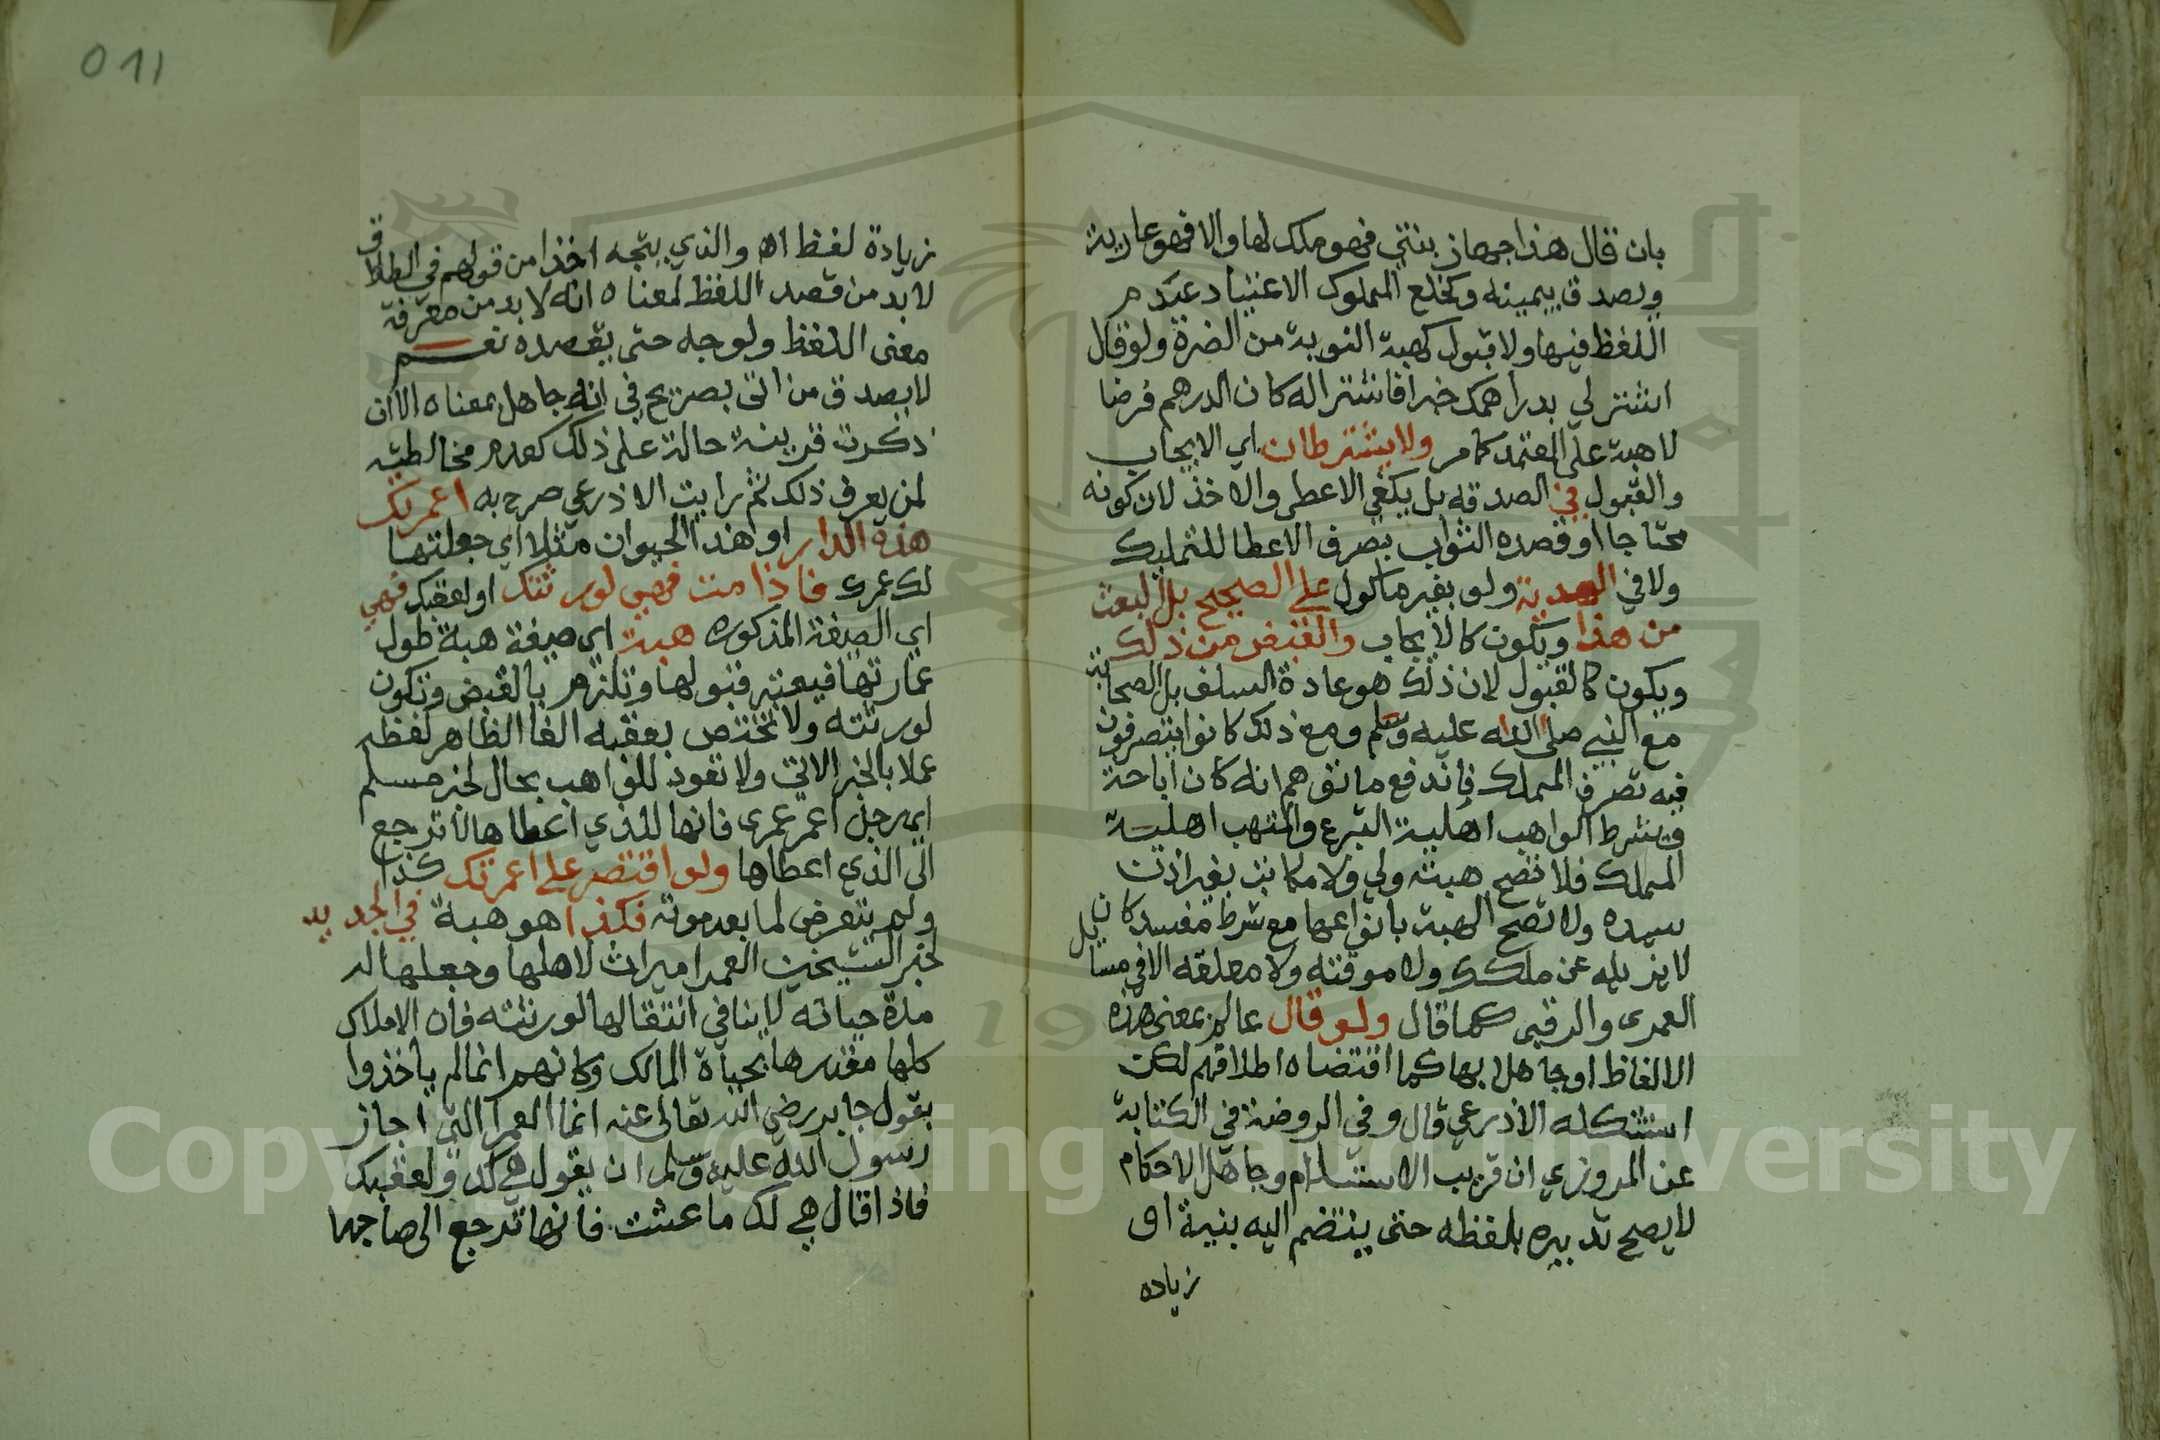 بان قال هذا جهاز بنتي فهو ملك لها والا فهو عارية
ويصدق بيمينه وكخلع الملوك الاعتياد عدم
اللفظ فيها ولا قبول كهبة النوبة من الضرة ولو قال
اشتر لي بدراهمك خبزا فاشتراه له كان الدرهم قرضا
لا هبة على المعتمد كما مر ولا يشترطان اي الايجاب
والقبول في الصدقه بل يكفي الاعطى والاخذ لان كونه
محتاجا او قصده الثواب يصرف الاعطا للتمليك
ولا في الهدية ولو بغير ماكول على الصحيح بل البعث
من هذا ويكون كالايجاب والقبض من ذلك
ويكون كالقبول لان ذلك هو عادة السلف بل الصحابة
مع النبي صلى الله عليه وسلم ومع ذلك كانوا يتصرفون
فيه تصرف الملاك فاندفع ما توهم انه كان اباحة
ويشرط الواهب اهلية التبرع والمتهب اهلية
الملك فلا تصح هبة ولي ولا مكاتب بغير اذن
سيده ولا تصح الهبة بانواعها مع شرط مفسد كان
لا يزيله عن ملكه ولا موقتة ولا معلقه الا في مسايل
العمرى والرقبى كما قال ولو قال عالم بمعنى هذه
الالفاظ او جاهل بها كما اقتضاه اطلاقهم لكن
استشكله الاذرعي قال وفي الروضة في الكتابة
عن المروزي ان قريب الاسلام وجاهل الاحكام
لا يصح تدبيره بلفظه حتى ينضم اليه بنية او
زياده
011
زيادة لفظ اه والذي يتجه اخذا من قولهم في الطلاق
لا بد من قصد اللفظ لمعناه انه لا بد من معرفة
معنى اللفظ ولو جه حتى يقصده نعم
لا يصدق من اتى بصريح في انه جاهل بمعناه الا ان
ذكرت قرينة حالة على ذلك كعدم مخالطته
لمن يعرف ذلك ثم رايت الاذرعي صرح به اعمرتك
هذه الدار او هذا الحيوان مثلا اي جعلتها
لك عمرك فاذا مت فهي لورثتك او لعقبك فهي
اي الصيغة المذكوره هبة اي صيغة هبة طول
عبارتها فيعتبر قبولها وتلزم بالقبض وتكون
لورثته ولا تختص بعقبه الغا الظاهر لفظه
عملا بالخبر الاتي ولا تعود للواهب بحال لخبر مسلم
ايما رجل اعمر عمرى فانها للذي اعطاها لا ترجع
الى الذي اعطاها ولو اقتصر على اعمرتك كذا
ولم يتعرض لما بعد موته فكذا هو هبة في الجديد
لخبر الشيخين العمرا ميراث لاهلها وجعلها له
مدة حياته لا ينافي انتقالها لورثته فان الاملاك
كلها مقدرها بحياة المالك وكانهم انما لم ياخذوا
بقول جابر رضي الله تعالى عنه انما العمرا التي اجاز
رسول الله عليه وسلم ان يقول هي لك ولعقبك
فاذا قال هي لك ما عشت فانها ترجع الى صاحبها